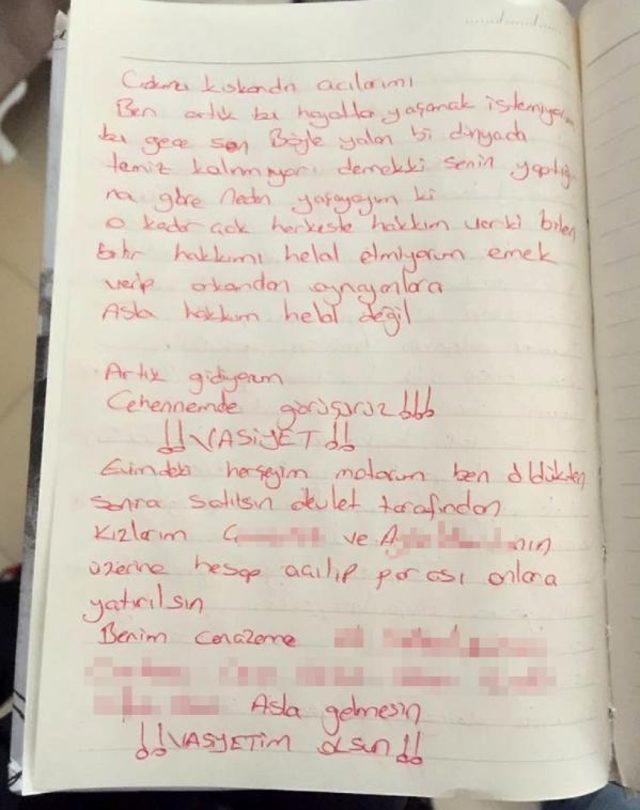 kıskandır acılarımı
Ben artık bu hayatta yaşamak istemiyorum
bu gece son Böyle yalan bi dünyada
temiz kalınmıyor demekki senin yaptığı
na göre Neden yaşayayım ki
o kadar çok herkeste hakkım var ki bilen
bilir hakkımı helal etmiyorum emek
verip arkandan oynayanlara
Asla hakkım helal değil
Artık gidiyorum
Cehennemde görüşürüz !!!
!! VASİYET !!
Evimdeki herşeyim motorum ben öldükten
sonra satılsın devlet tarafından
Kızlarım ve nın
üzerine hesap açılıp parası onlara
yatırılsın
Benim cenazeme
Asla gelmesin
!! VASYETİM olsun !!